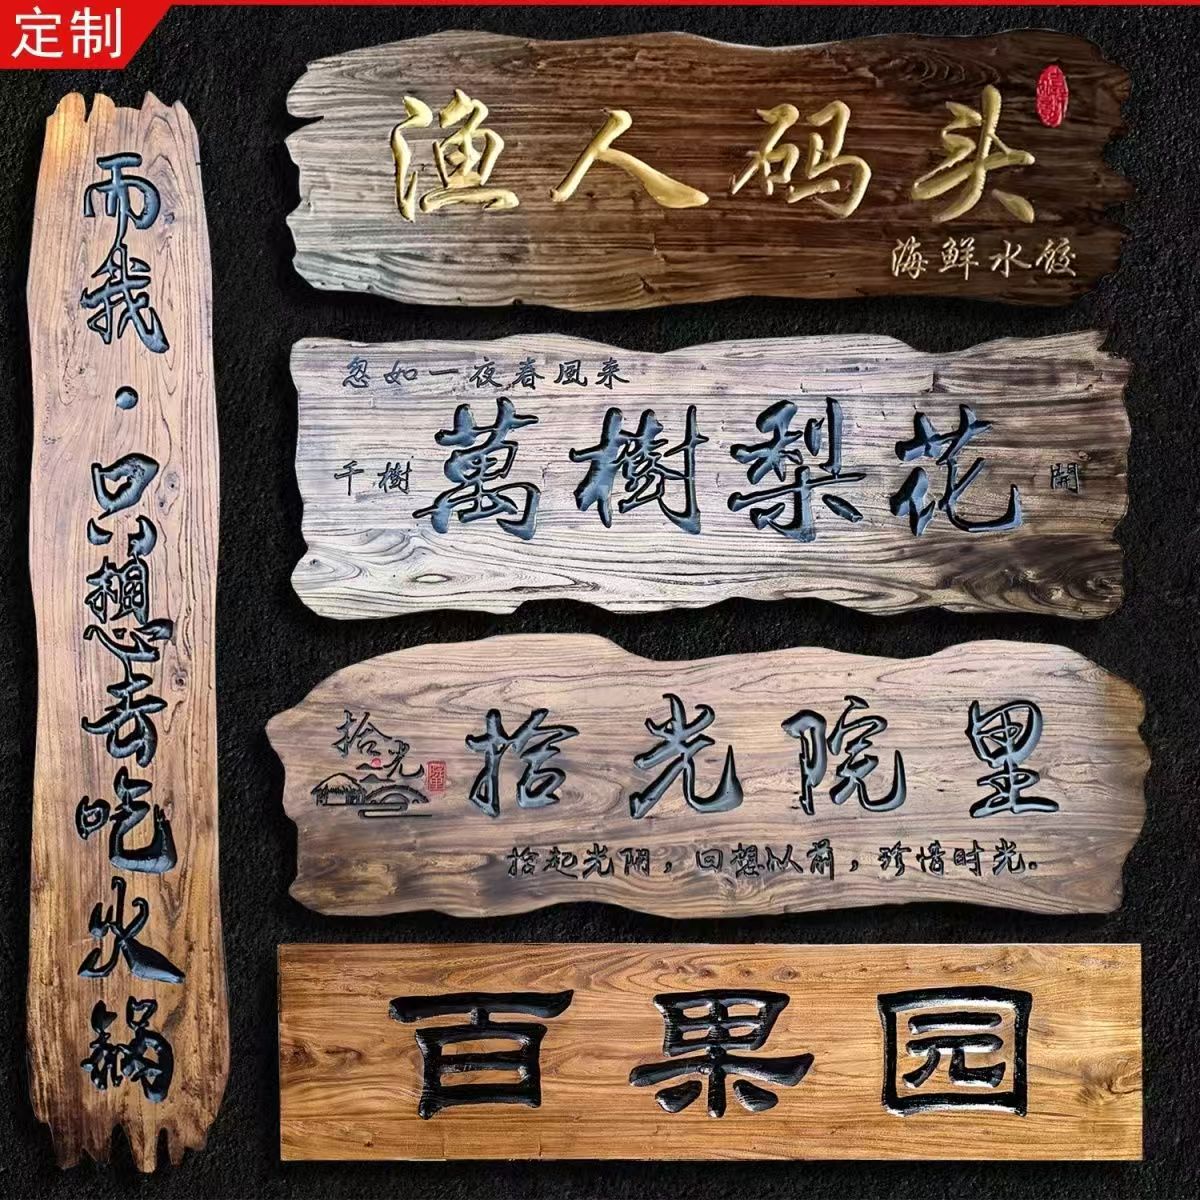 定制
而我·只想去吃火锅
渔人码头
海鲜水饺
忽如一夜春風来
千樹
萬樹梨花
開
拾光
拾光院里
拾起光阴，回想以前，珍惜时光.
百果园